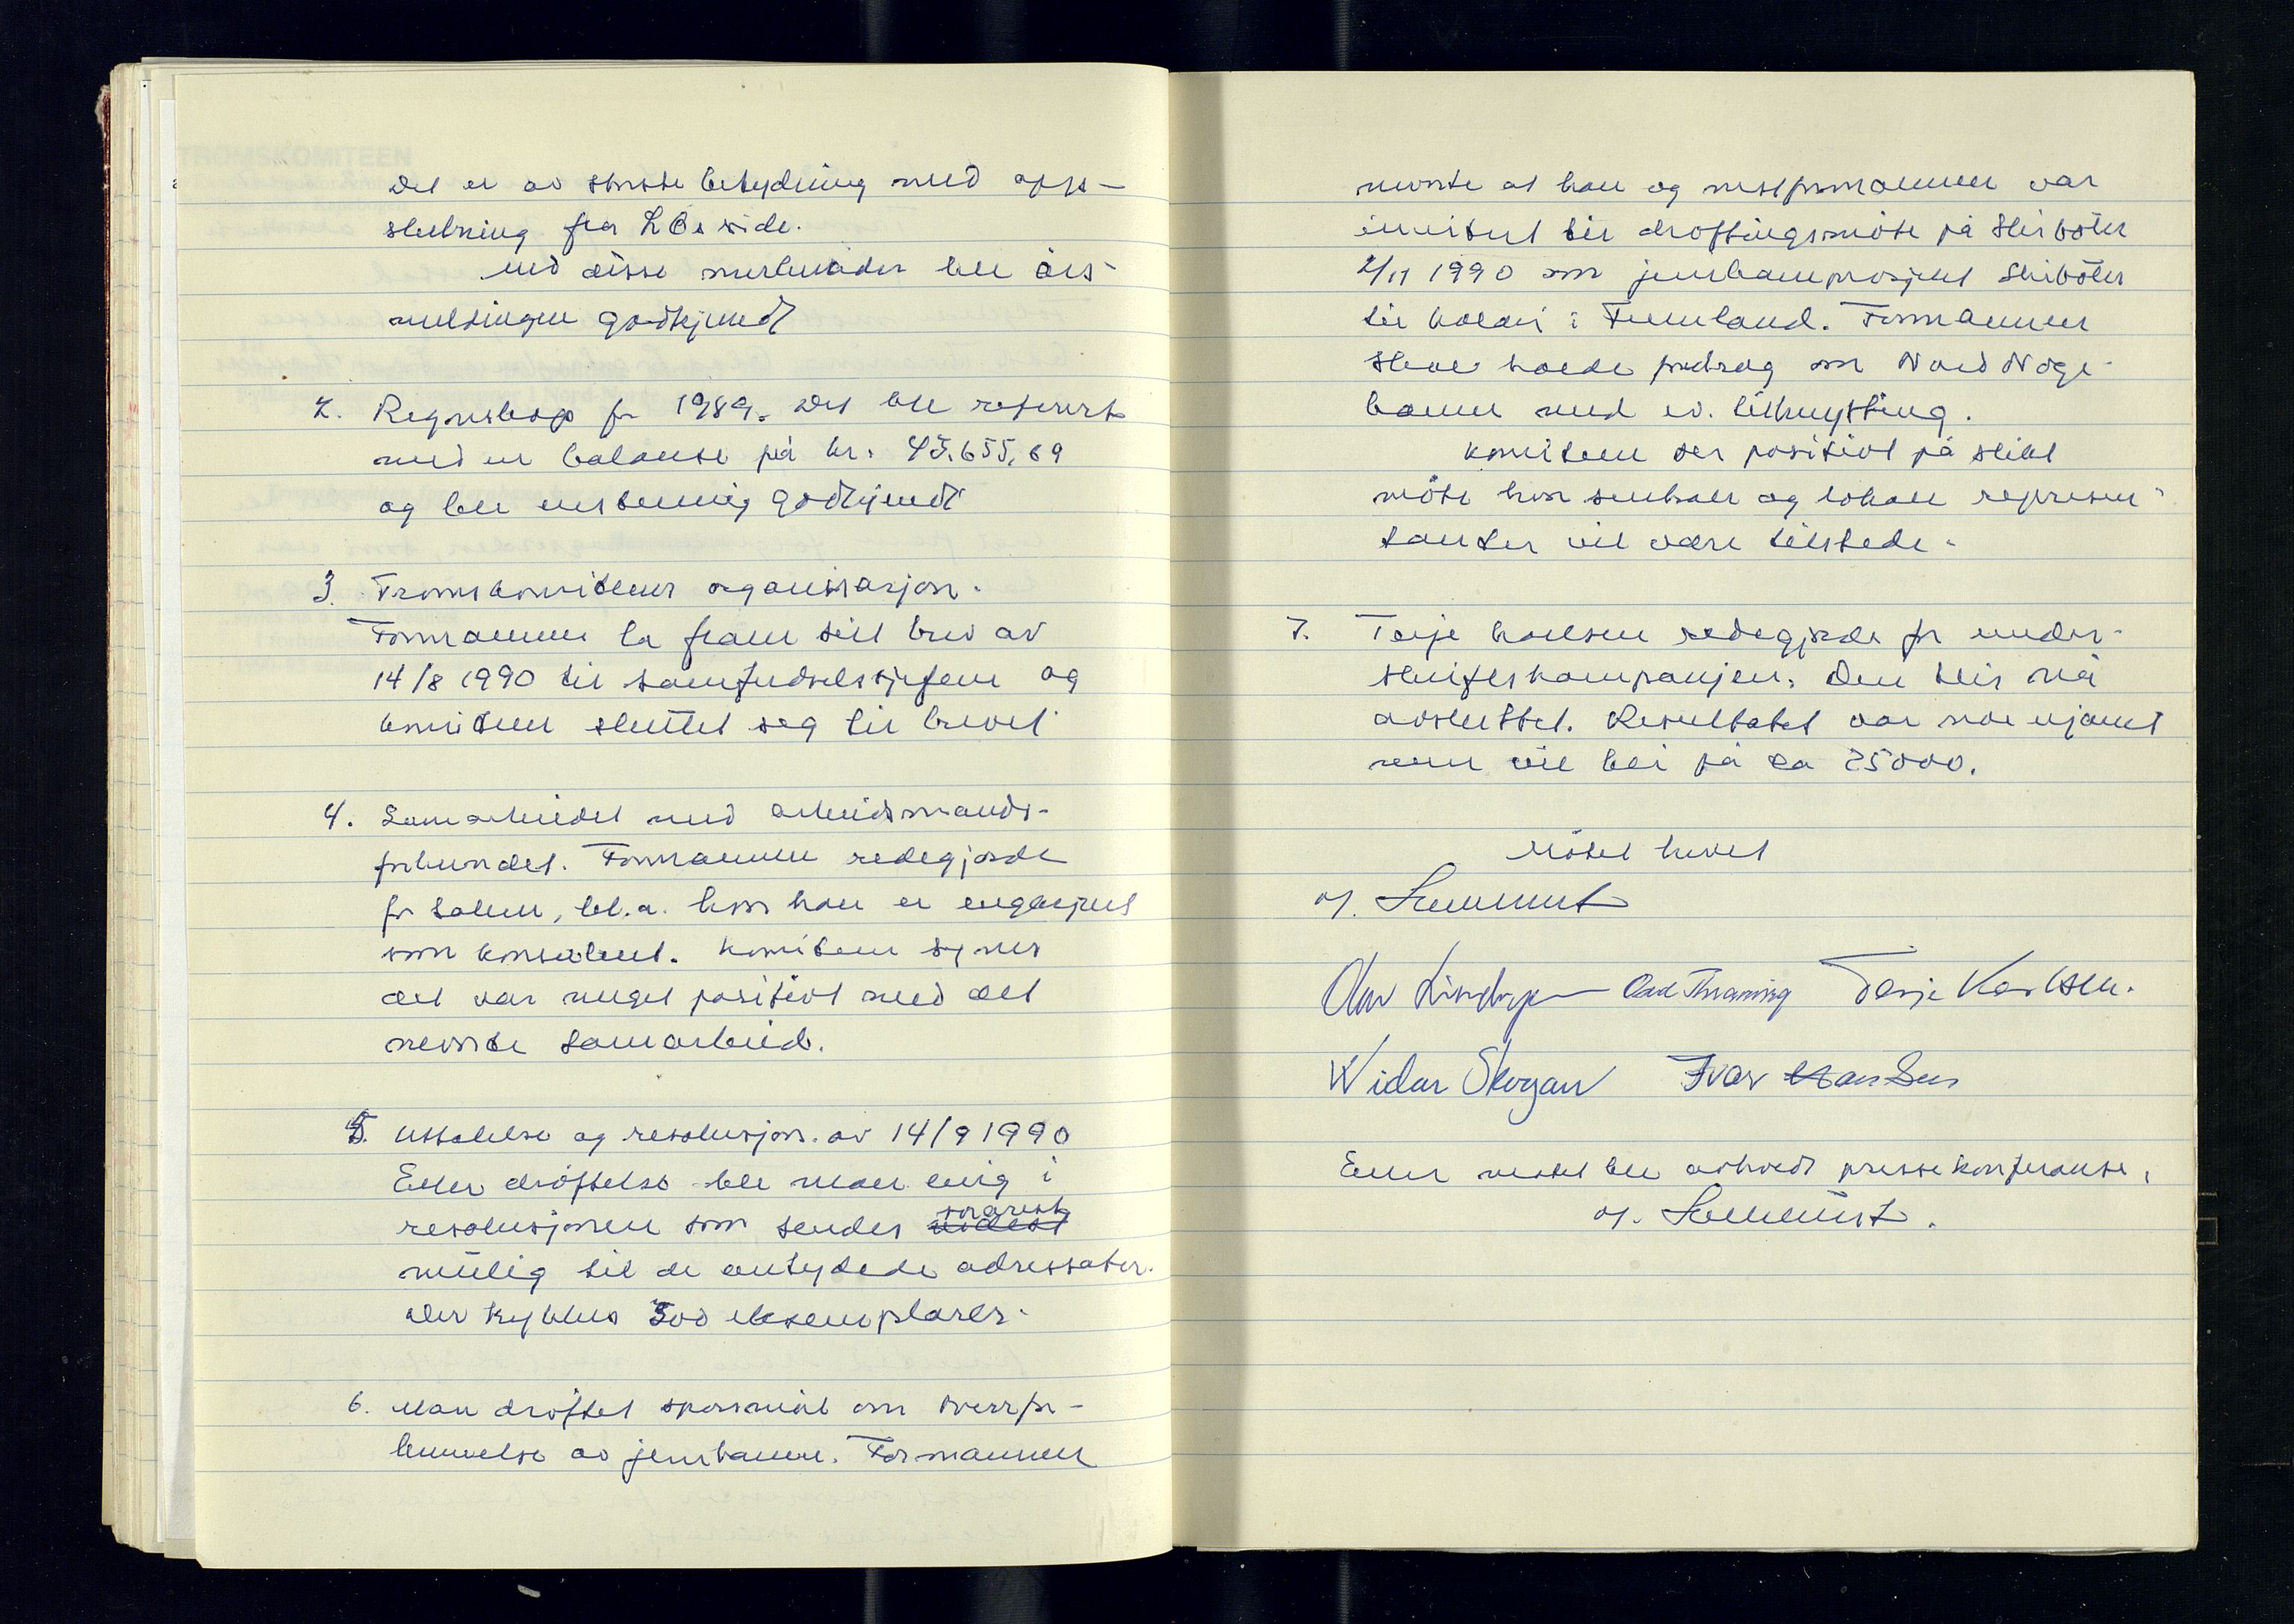 Det er av største betydning med opps-
slutning fra LOs side.
Med disse merknader ble års-
meldingen godkjendt
2. Regnskap for 1989. Det ble referert
med en balanse på kr. 45.655,69
og ble enstemmig godkjendt
3. Tromskomiteens organisasjon.
Formannen la fram sitt brev av
14/8 1990 til samferdselssjefen og
komiteen sluttet seg til brevet
4. Samarbeidet med arbeidsmands-
forbundet. Formannen redegjorde
for saken, bl.a. hvor han er engasjert
som konsulent. Komiteen synes
det var meget positivt med det
nevnte samarbeid.
5. Uttalelse og resolusjon av 14/9 1990
Etter drøftelse ble man enig i
resolusjonen som sendes snarest
mulig til de antydede adressater.
Der trykkes 500 eksemplarer.
6. Man drøftet spørsmål om tverrfor-
bindelse av jernbanen. Formannen
nevnte at han og nestformannen var
invitert til drøftingsmøte på Skibotn
2/11 1990 om jernbaneprosjekt Skibotn
til Kolari i Finnland. Formannen
skal holde foredrag om Nord Norge-
banen med ev. tilknytting.
Komiteen ser positivt på slikt
møte hvor sentrale og lokale represen-
tanter vil være tilstede.
7. Terje Karlsen redegjorde for under-
skriftskampanjen. Den blir nå
avsluttet. Resultatet var noe ujamt
men vil bli på ca 25000.
Møtet hevet
Terje Karlsen.
Widar Skogan Ivar Hansen
Etter møtet ble avholdt pressekonferanse.